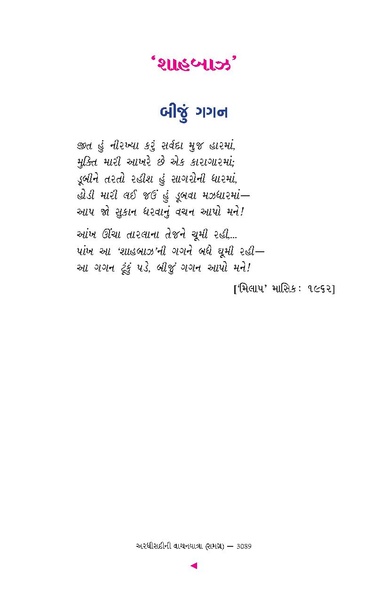 ‘શાહબાઝ’
બીજું ગગન
જીત હું નીરખ્યા કરું સર્વદા મુજ હારમાં,
મુક્તિ મારી આખરે છે એક કારાગારમાં;
ડૂબીને તરતો રહીશ હું સાગરોની ધારમાં,
હોડી મારી લઈ જઉં હું ડૂબવા મઝધારમાં—
આપ જો સુકાન ધરવાનું વચન આપો મને!
આંખ ઊંચા તારલાના તેજને ચૂમી રહી,...
પાંખ આ ‘શાહબાઝ’ની ગગને બધે ઘૂમી રહી—
આ ગગન ટૂંકું પડે, બીજું ગગન આપો મને!
[‘મિલાપ’ માસિક: ૧૯૬૨]
અરધીસદીની વાચનયાત્રા (સમગ્ર) — 3089